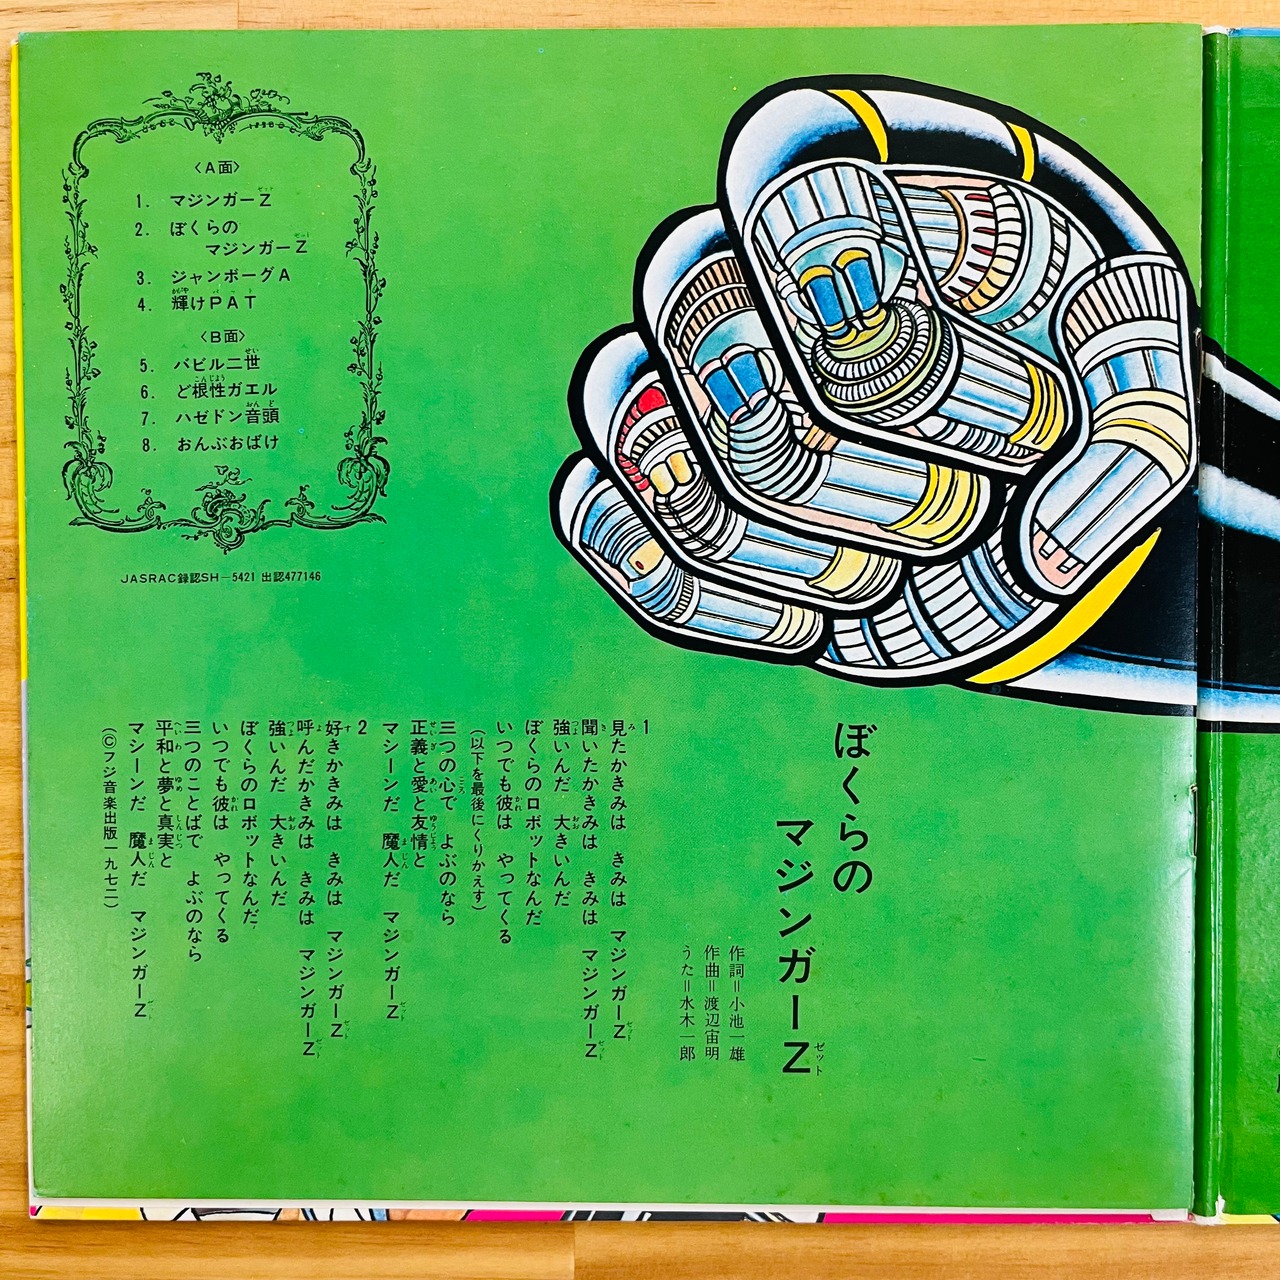 〈A面〉
1. マジンガーZ
2. ぼくらの
マジンガーZ
3. ジャンボーグA
4. 輝けPAT
〈B面〉
5. バビル二世
6. ど根性ガエル
7. ハゼドン音頭
8. おんぶおばけ
JASRAC録認SH-5421 出認477146
ぼくらの
マジンガーZ
作詞=小池一雄
作曲=渡辺宙明
うた=水木一郎
1
見たかきみは きみは マジンガーZ
聞いたかきみは きみは マジンガーZ
強いんだ 大きいんだ
ぼくらのロボットなんだ
いつでも彼は やってくる
(以下を最後にくりかえす)
三つの心で よぶのなら
正義と愛と友情と
マシーンだ 魔人だ マジンガーZ
2
好きかきみは きみは マジンガーZ
呼んだかきみは きみは マジンガーZ
強いんだ 大きいんだ
ぼくらのロボットなんだ
いつでも彼は やってくる
三つのことばで よぶのなら
平和と夢と真実と
マシーンだ 魔人だ マジンガーZ
(©フジ音楽出版一九七二)